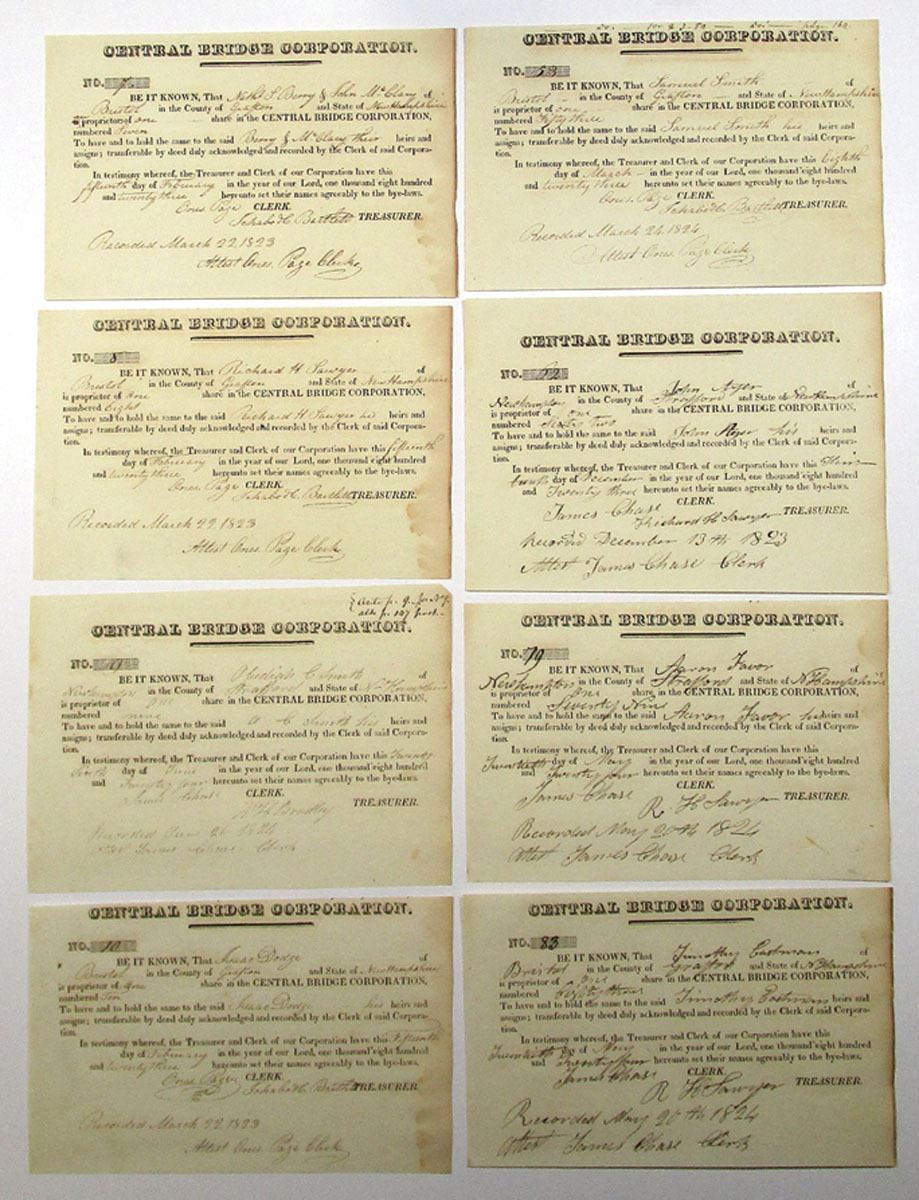 CENTRAL BRIDGE CORPORATION.
NO. 7
BE IT KNOWN, That Nathl S. Berry & John McClary of
Bristol in the County of Grafton and State of New Hampshire
proprietors of one share in the CENTRAL BRIDGE CORPORATION,
numbered Seven
To have and to hold the same to the said Berry & McClary their heirs and
assigns; transferable by deed duly acknowledged and recorded by the Clerk of said Corpora-
tion.
In testimony whereof, the Treasurer and Clerk of our Corporation have this
fifteenth day of February in the year of our Lord, one thousand eight hundred
and twenty three hereunto set their names agreeably to the bye-laws.
Ones. Page CLERK.
Ichabod C. Bartlett TREASURER.
Recorded March 22, 1823
Attest Ones. Page Clerk
CENTRAL BRIDGE CORPORATION.
NO. 8
BE IT KNOWN, That Richard H Sawyer of
Bristol in the County of Grafton and State of New Hampshire
is proprietor of One share in the CENTRAL BRIDGE CORPORATION,
numbered Eight
To have and to hold the same to the said Richard H Sawyer his heirs and
assigns; transferable by deed duly acknowledged and recorded by the Clerk of said Corpora-
tion.
In testimony whereof, the Treasurer and Clerk of our Corporation have this fifteenth
day of February in the year of our Lord, one thousand eight hundred
and twenty three hereunto set their names agreeably to the bye-laws.
Ones Page CLERK.
Ichabod C. Bartlett TREASURER.
Recorded March 22, 1823
Attest Ones. Page Clerk
CENTRAL BRIDGE CORPORATION.
NO.
BE IT KNOWN, That Obediah C Smith of
New Hampton in the County of Strafford and State of N. Hampshire
is proprietor of One share in the CENTRAL BRIDGE CORPORATION,
numbered nine
To have and to hold the same to the said O C Smith his heirs and
assigns; transferable by deed duly acknowledged and recorded by the Clerk of said Corpora-
tion.
In testimony whereof, the Treasurer and Clerk of our Corporation have this Twenty
Sixth day of June in the year of our Lord, one thousand eight hundred
and Twenty four hereunto set their names agreeably to the bye-laws.
James Chase CLERK.
TREASURER.
Recorded June 26 1824
Attest James Chase Clerk
CENTRAL BRIDGE CORPORATION.
NO. 10
BE IT KNOWN, That Isaac Dodge of
Bristol in the County of Grafton and State of New Hampshire
is proprietor of One share in the CENTRAL BRIDGE CORPORATION,
numbered Ten
To have and to hold the same to the said Isaac Dodge his heirs and
assigns; transferable by deed duly acknowledged and recorded by the Clerk of said Corpora-
tion.
In testimony whereof, the Treasurer and Clerk of our Corporation have this Fifteenth
day of February in the year of our Lord, one thousand eight hundred
and twenty three hereunto set their names agreeably to the bye-laws.
Ones Page CLERK.
Ichabod C. Bartlett TREASURER.
Recorded March 22, 1823
Attest Ones. Page Clerk
CENTRAL BRIDGE CORPORATION.
NO. 53
BE IT KNOWN, That Samuel Smith of
Bristol in the County of Grafton and State of New Hampshire
is proprietor of one share in the CENTRAL BRIDGE CORPORATION,
numbered Fifty three
To have and to hold the same to the said Samuel Smith his heirs and
assigns; transferable by deed duly acknowledged and recorded by the Clerk of said Corpora-
tion.
In testimony whereof, the Treasurer and Clerk of our Corporation have this Eighth
day of March in the year of our Lord, one thousand eight hundred
and twenty three hereunto set their names agreeably to the bye-laws.
Ones. Page CLERK.
Ichabod C. Bartlett TREASURER.
Recorded March 24, 1824
Attest Ones. Page Clerk
CENTRAL BRIDGE CORPORATION.
NO.
BE IT KNOWN, That John Ayer of
New Hampton in the County of Strafford and State of New Hampshire
is proprietor of One share in the CENTRAL BRIDGE CORPORATION,
numbered Sixty two
To have and to hold the same to the said John Ayer his heirs and
assigns; transferable by deed duly acknowledged and recorded by the Clerk of said Corpora-
tion.
In testimony whereof, the Treasurer and Clerk of our Corporation have this Thir-
teenth day of December in the year of our Lord, one thousand eight hundred
and Twenty three hereunto set their names agreeably to the bye-laws.
James Chase CLERK.
Richard H Sawyer TREASURER.
Recorded December 13th 1823
Attest James Chase Clerk
CENTRAL BRIDGE CORPORATION.
NO. 79
BE IT KNOWN, That Aaron Favor of
New Hampton in the County of Strafford and State of N Hampshire
is proprietor of One share in the CENTRAL BRIDGE CORPORATION,
numbered Seventy Nine
To have and to hold the same to the said Aaron Favor his heirs and
assigns; transferable by deed duly acknowledged and recorded by the Clerk of said Corpora-
tion.
In testimony whereof, the Treasurer and Clerk of our Corporation have this
Twentieth day of May in the year of our Lord, one thousand eight hundred
and Twenty four hereunto set their names agreeably to the bye-laws.
James Chase CLERK.
R. H Sawyer TREASURER.
Recorded May 20th 1824
Attest James Chase Clerk
CENTRAL BRIDGE CORPORATION.
NO. 83
BE IT KNOWN, That Timothy Eastman of
Bristol in the County of Grafton and State of N Hampshire
is proprietor of One share in the CENTRAL BRIDGE CORPORATION,
numbered Eighty three
To have and to hold the same to the said Timothy Eastman his heirs and
assigns; transferable by deed duly acknowledged and recorded by the Clerk of said Corpora-
tion.
In testimony whereof, the Treasurer and Clerk of our Corporation have this
Twentieth day of May in the year of our Lord, one thousand eight hundred
and Twenty four hereunto set their names agreeably to the bye-laws.
James Chase CLERK.
R H Sawyer TREASURER.
Recorded May 20th 1824
Attest James Chase Clerk